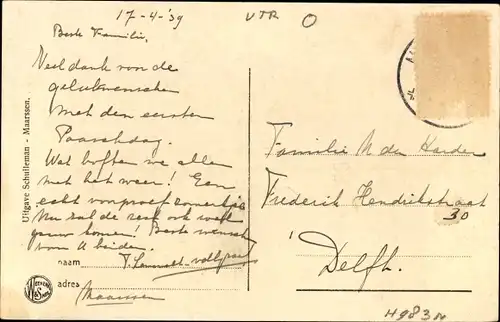 17-4-'39
VTR O
Beste Familie,
Veel dank voor de
gelukwenschen
met den eersten
Paaschdag.
Wat boften we allen
met het weer! Een
echt voorproef zomertje
Nu zal de zaak ook wel
gauw komen! Beste wensch
van U beiden.
naam
adres Maarssen
Uitgave Schulleman - Maarssen.
Familie N der Harder
Frederik Hendrikstraat
30
Delft.
H983N